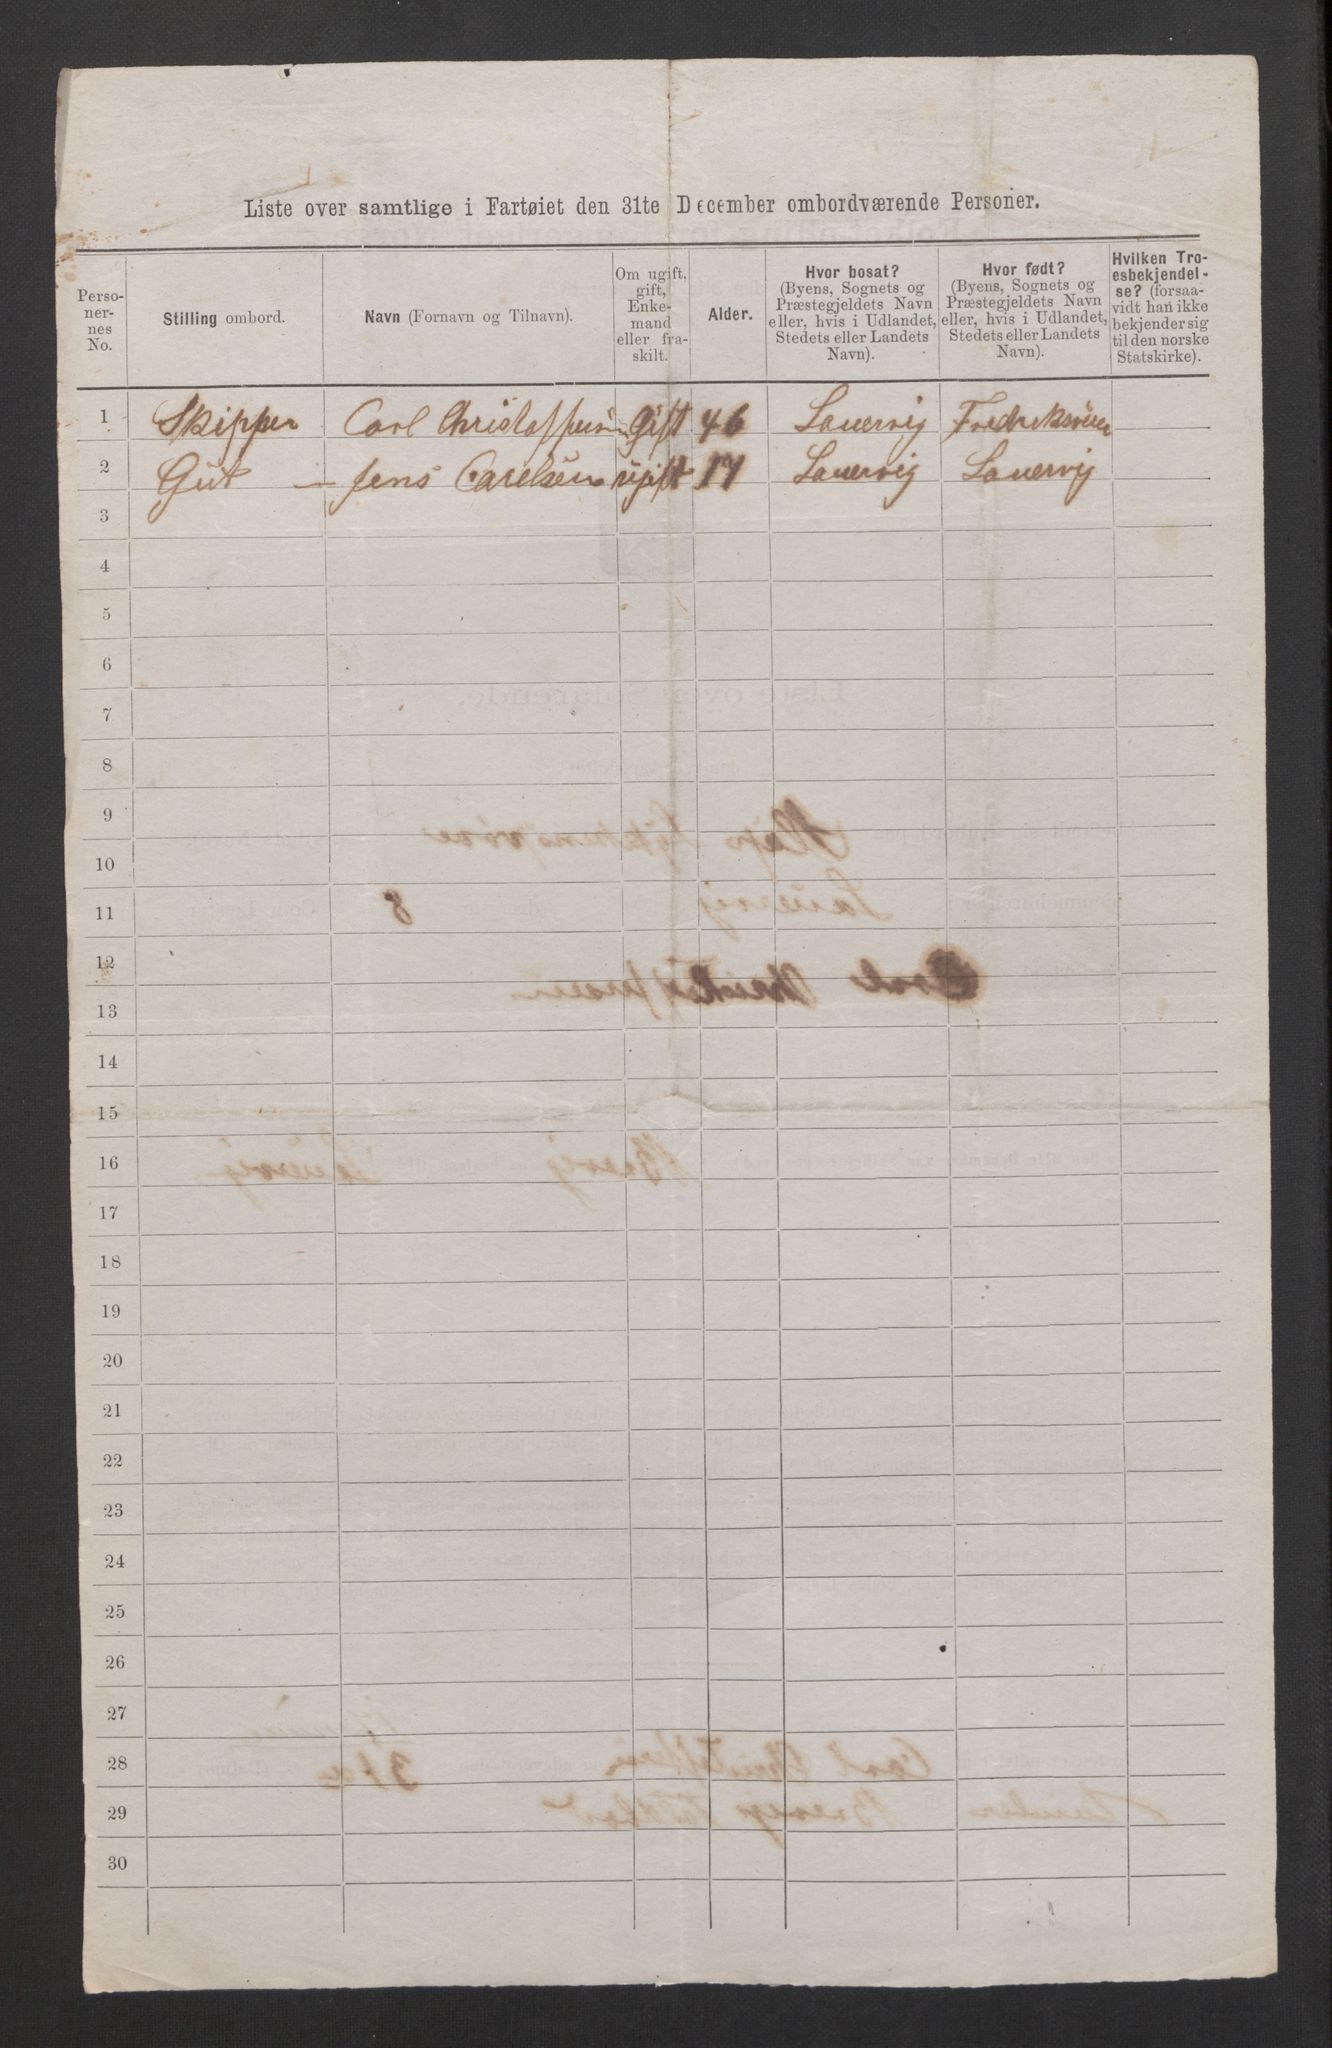 Liste over samtlige i Fartøiet den 31te December ombordværende Personer.
Perso-
ner-
nes
No.
Stilling ombord.
Navn (Fornavn og Tilnavn).
Om ugift,
gift,
Enke-
mand
eller fra-
skilt.
Alder.
Hvor bosat?
(Byens, Sognets og
Præstegjeldets Navn
eller, hvis i Udlandet,
Stedets eller Landets
Navn).
Hvor født?
(Byens, Sognets og
Præstegjeldets Navn
eller, hvis i Udlandet,
Stedets eller Landets
Navn).
Hvilken Tro-
esbekjendel-
se? (forsaa-
vidt han ikke
bekjender sig
til den norske
Statskirke).
1 Skipper Carl Christoffersen Gift 46 Lauervig
2 Gut — Jens Carelsen ugift 17 Lauervig Lauervig
3
4
5
6
7
8
9
10
11
12
13
14
15
16
17
18
19
20
21
22
23
24
25
26
27
28
29
30